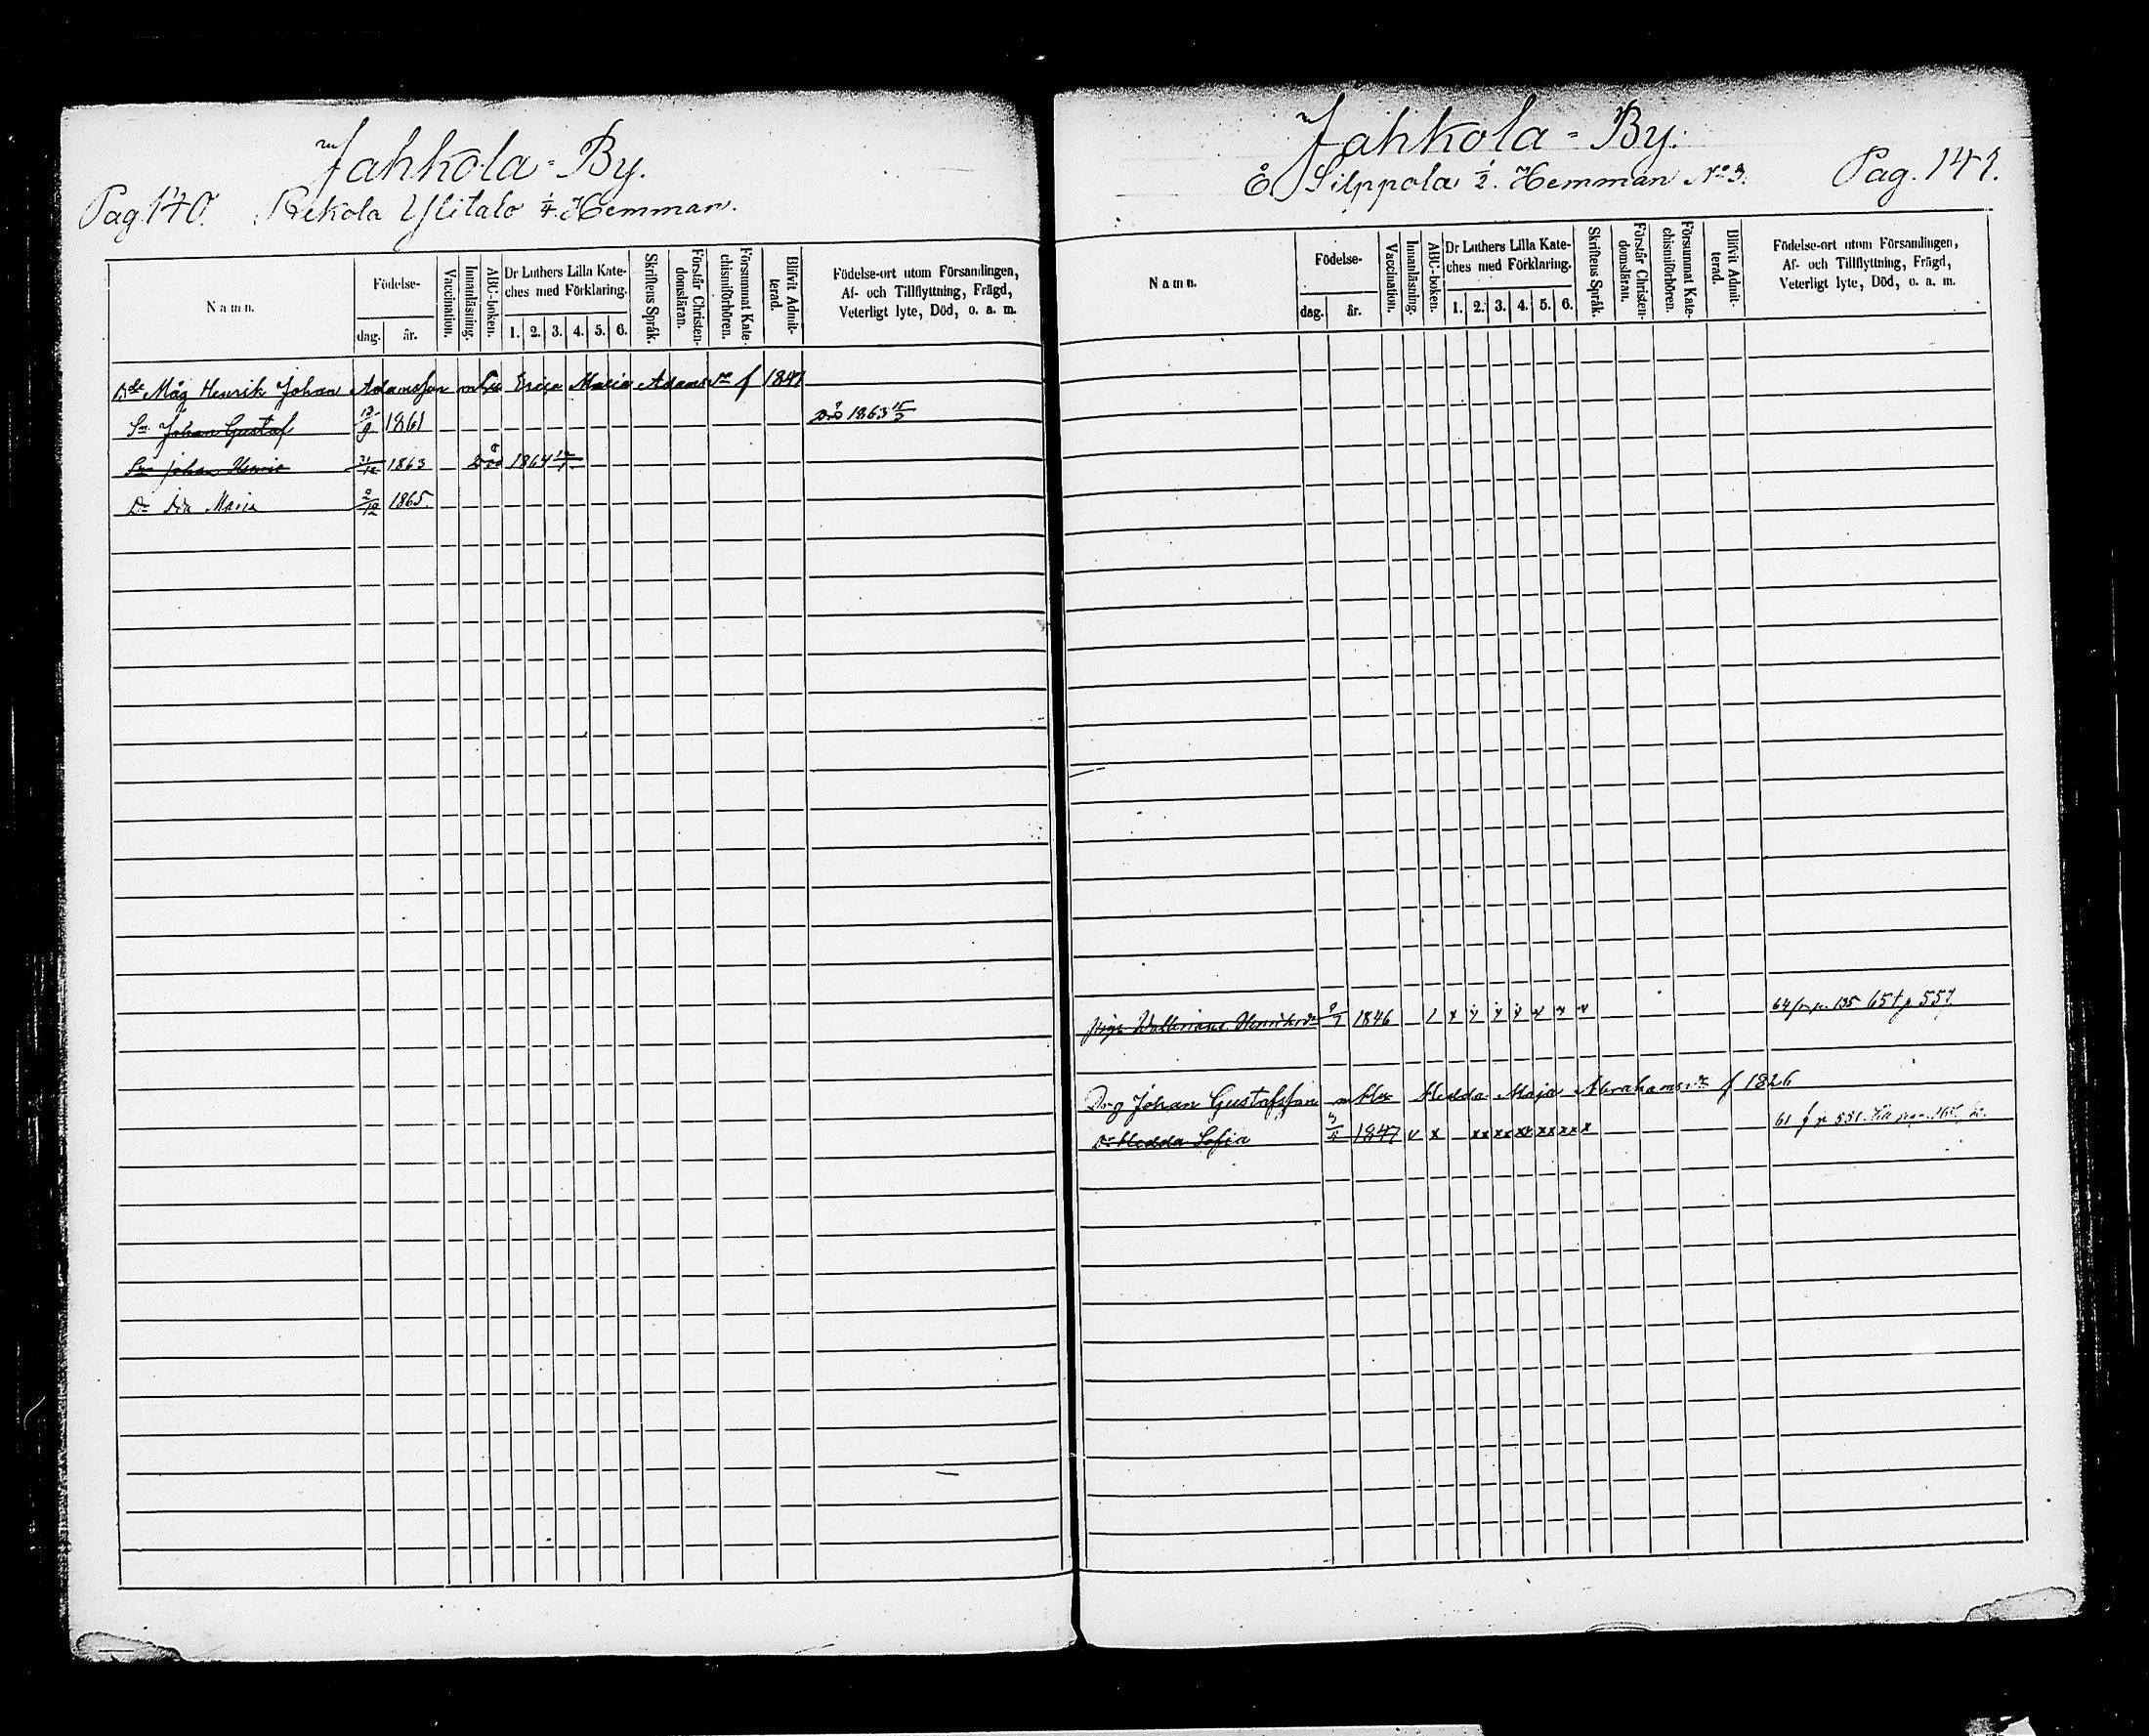 Jahkola-By.
Pag 140. Rekola Ylitalo 1/4 Hemman.
Namn.
Födelse-
dag.
år.
Vaccination.
Innanläsning.
ABC-boken.
Dr Luthers Lilla Kate-
ches med Förklaring.
1. 2. 3. 4. 5. 6.
Skriftens Språk.
Förstår Christen-
domsläran.
Försummat Kate-
chismiförhören.
Blifvit Admit-
terad.
Födelse-ort utom Församlingen,
Af- och Tillflyttning, Frägd,
Veterligt lyte, Död, o. a. m.
Måg Henrik Johan Adamsson m Hu Erica Maria Adamsdr f 1841
Sn Johan Gustaf 12/9 1861 Död 1863 15/3
Sn Johan Henric 21/12 1863 Död 1864
Dr Ida Maria 2/12 1865.
Jahkola-By.
Silppola 1/2 Hemman No 3. Pag. 141.
Namn.
Födelse-
dag.
år.
Vaccination.
Innanläsning.
ABC-boken.
Dr Luthers Lilla Kate-
ches med Förklaring.
1. 2. 3. 4. 5. 6.
Skriftens Språk.
Förstår Christen-
domsläran.
Försummat Kate-
chismiförhören.
Blifvit Admit-
terad.
Födelse-ort utom Församlingen,
Af- och Tillflyttning, Frägd,
Veterligt lyte, Död, o. a. m.
Henriksdr 1846 64 fr p. 135 65 t p 557
Drg Johan Gustafsson m Hu Hedda Maja Abrahamsdr f 1826
Dr Hedda Sofia 1847 v x xx xx xx xx xx x 61 f p 551.